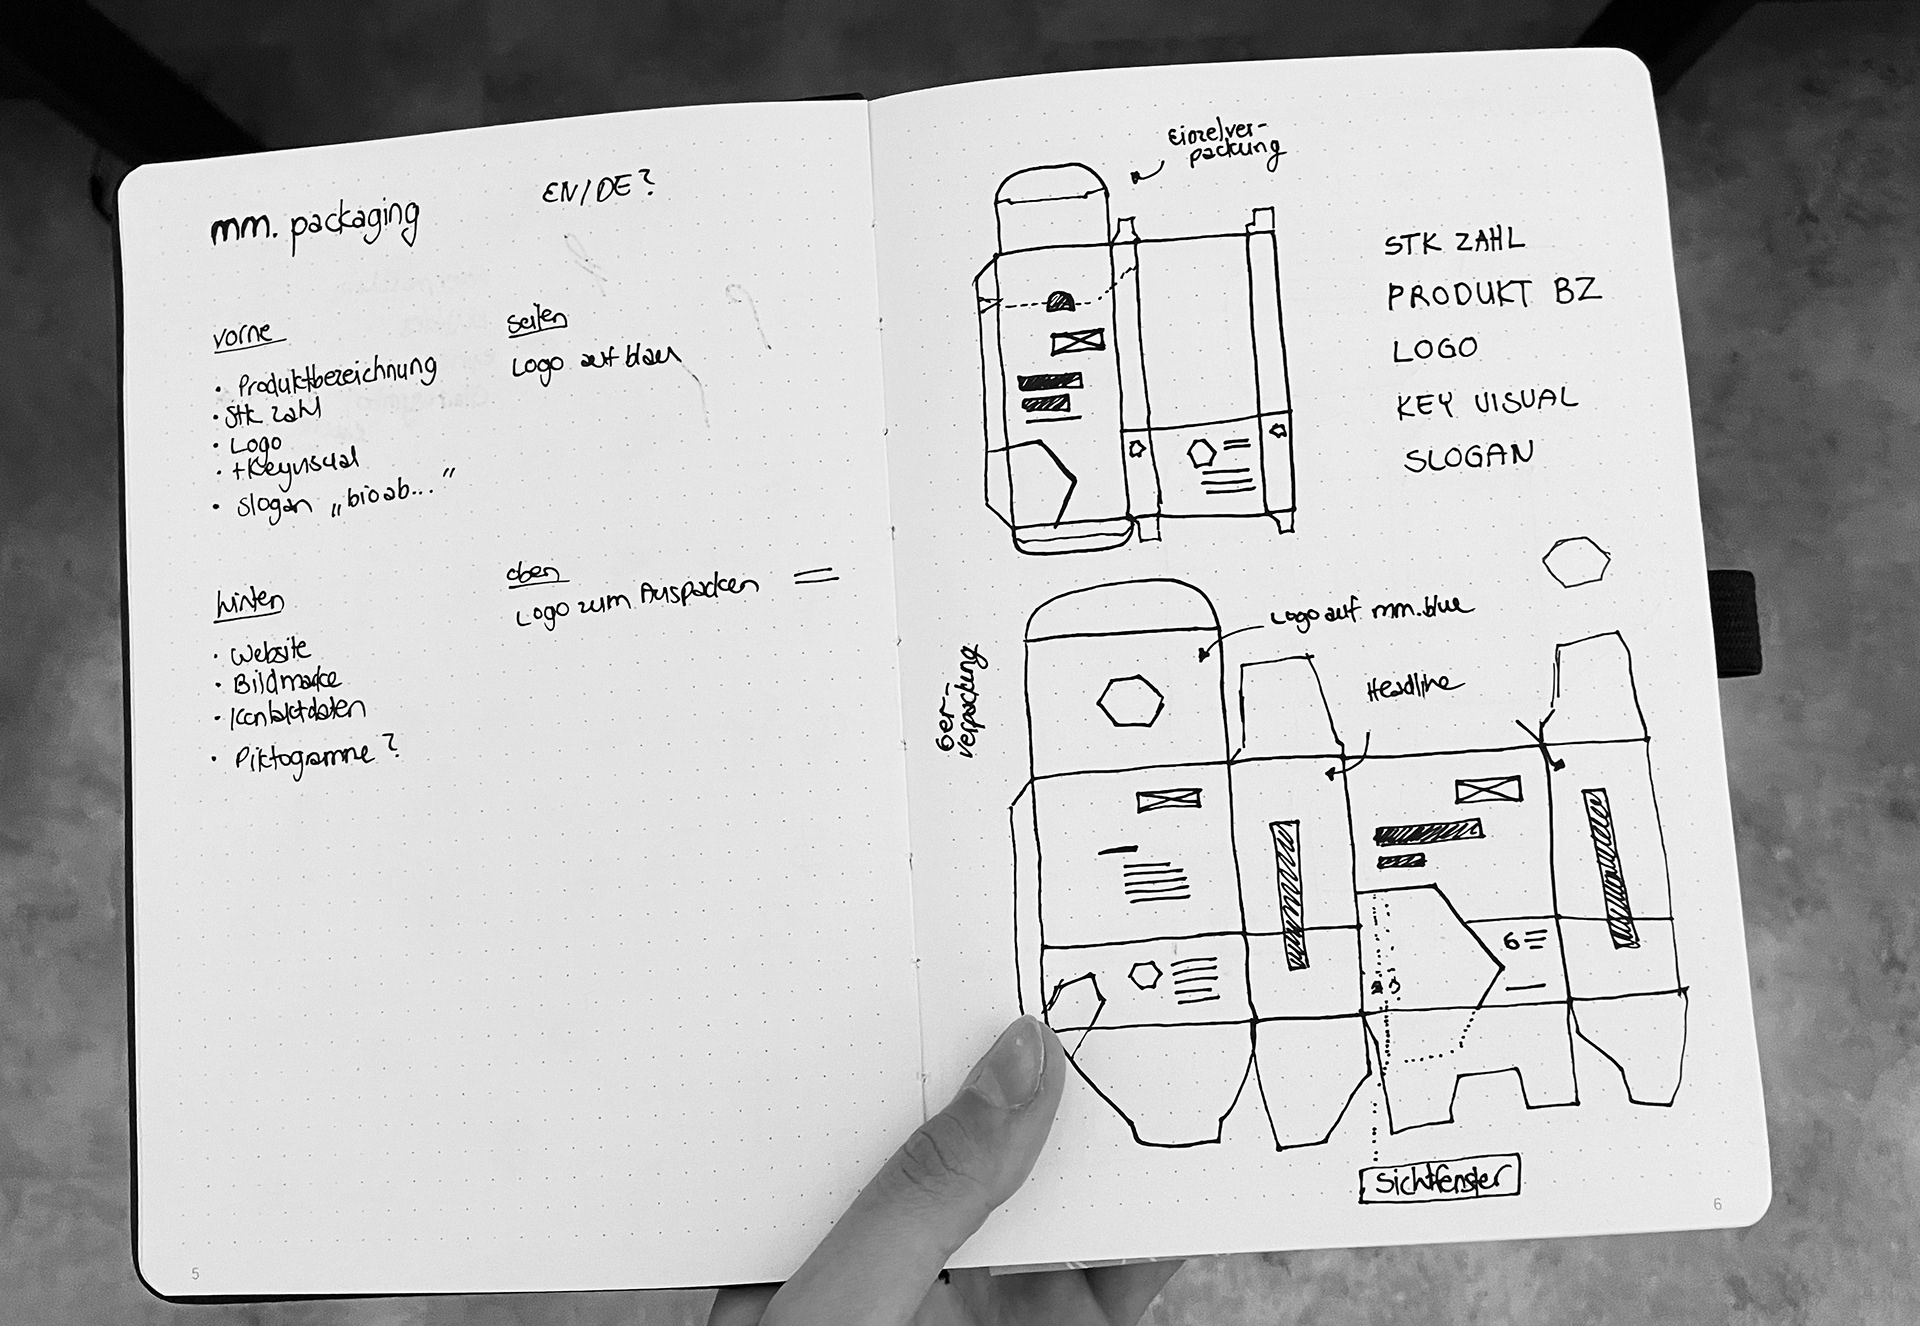 mm. packaging
EN/DE?
vorne
• Produktbezeichnung
• Stk zahl
• Logo
• + Keyvisual
• Slogan „bioab..."
seiten
Logo auf blau
hinten
• Website
• Bildmarke
• Kontaktdaten
• Piktogramme?
oben
Logo zum Auspacken =
5
Einzelver-
packung
STK ZAHL
PRODUKT BZ
LOGO
KEY VISUAL
SLOGAN
6er-
verpackung
Logo auf mm.blue
Headline
6
Sichtfenster
6